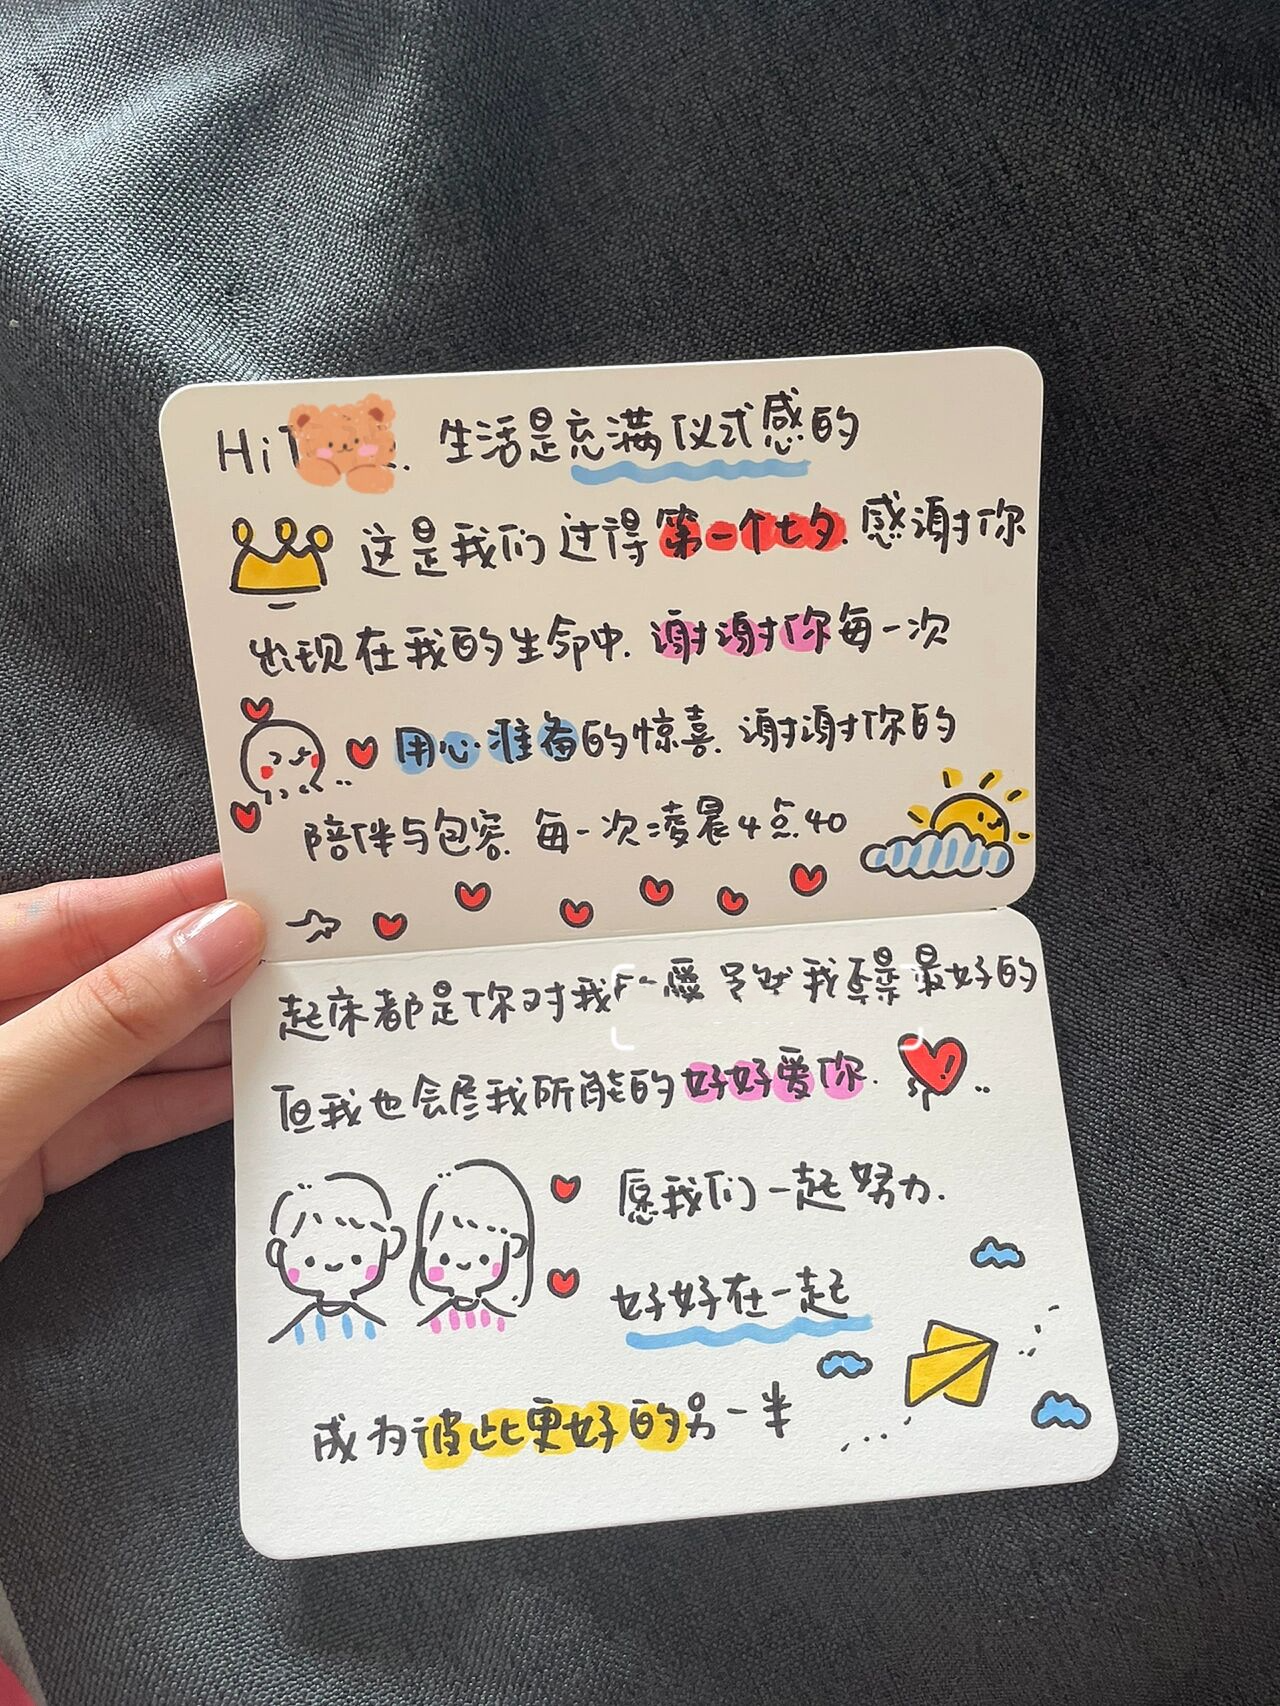 Hi
生活是充满仪式感的
这是我们过得第一个七夕.感谢你
出现在我的生命中.谢谢你每一次
用心准备的惊喜.谢谢你的
陪伴与包容.每一次凌晨4点40
起床都是你对我 爱 我 最好的
但我也会尽我所能的好好爱你.
愿我们一起努力.
好好在一起
成为彼此更好的另一半